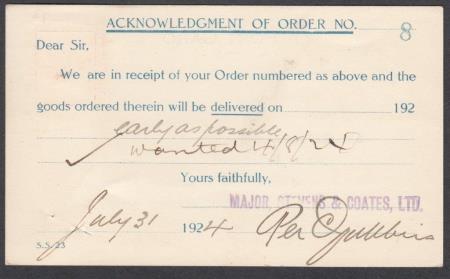 ACKNOWLEDGMENT OF ORDER NO. 8
Dear Sir,
We are in receipt of your Order numbered as above and the
goods ordered therein will be delivered on 192
early as possible
wanted 4/8/24
Yours faithfully,
MAJOR, STEVENS & COATES, LTD.
July 31 1924 Per
S.S. 23